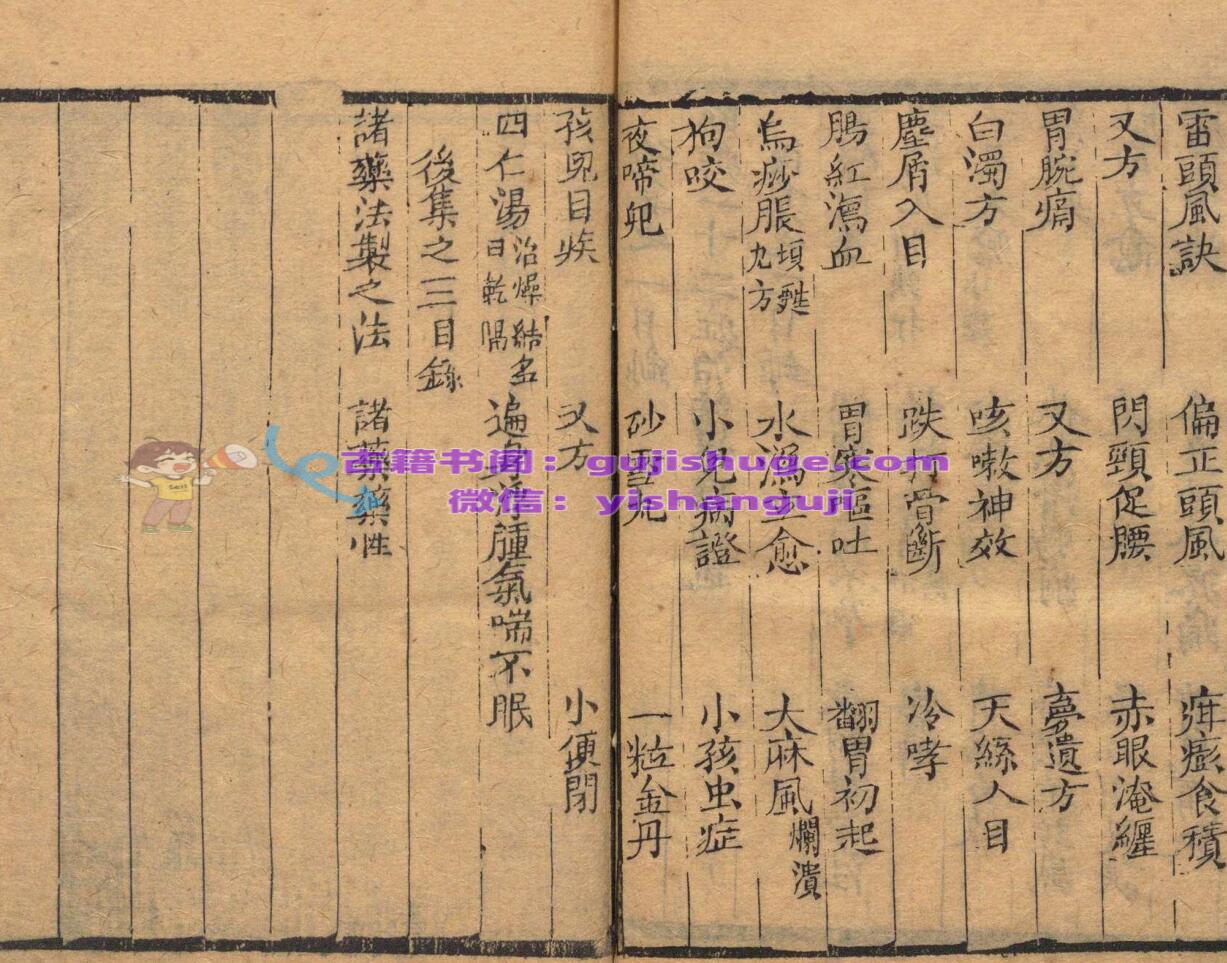 雷頭風訣 偏正頭風 疳膨食積
又方 閃頸促腰 赤眼淹纏
胃脘痛 又方 夢遺方
白濁方 咳嗽神效 天絲人目
塵屑入目 跌打骨斷 冷哮
腸紅瀉血 胃寒嘔吐 翻胃初起
烏痧脹 九方 水瀉立愈 大麻風 爛潰
狗咬 小兒病證 小孩虫症
夜啼兒 砂雪丸 一粒金丹
孩兒目疾 又方 小便閉
四仁湯 治燥結名曰乾隔 遍身浮腫氣喘不眠
後集之三目錄
諸藥法製之法 諸藥藥性
古籍书阁:gujishuge.com
微信:yishanguji